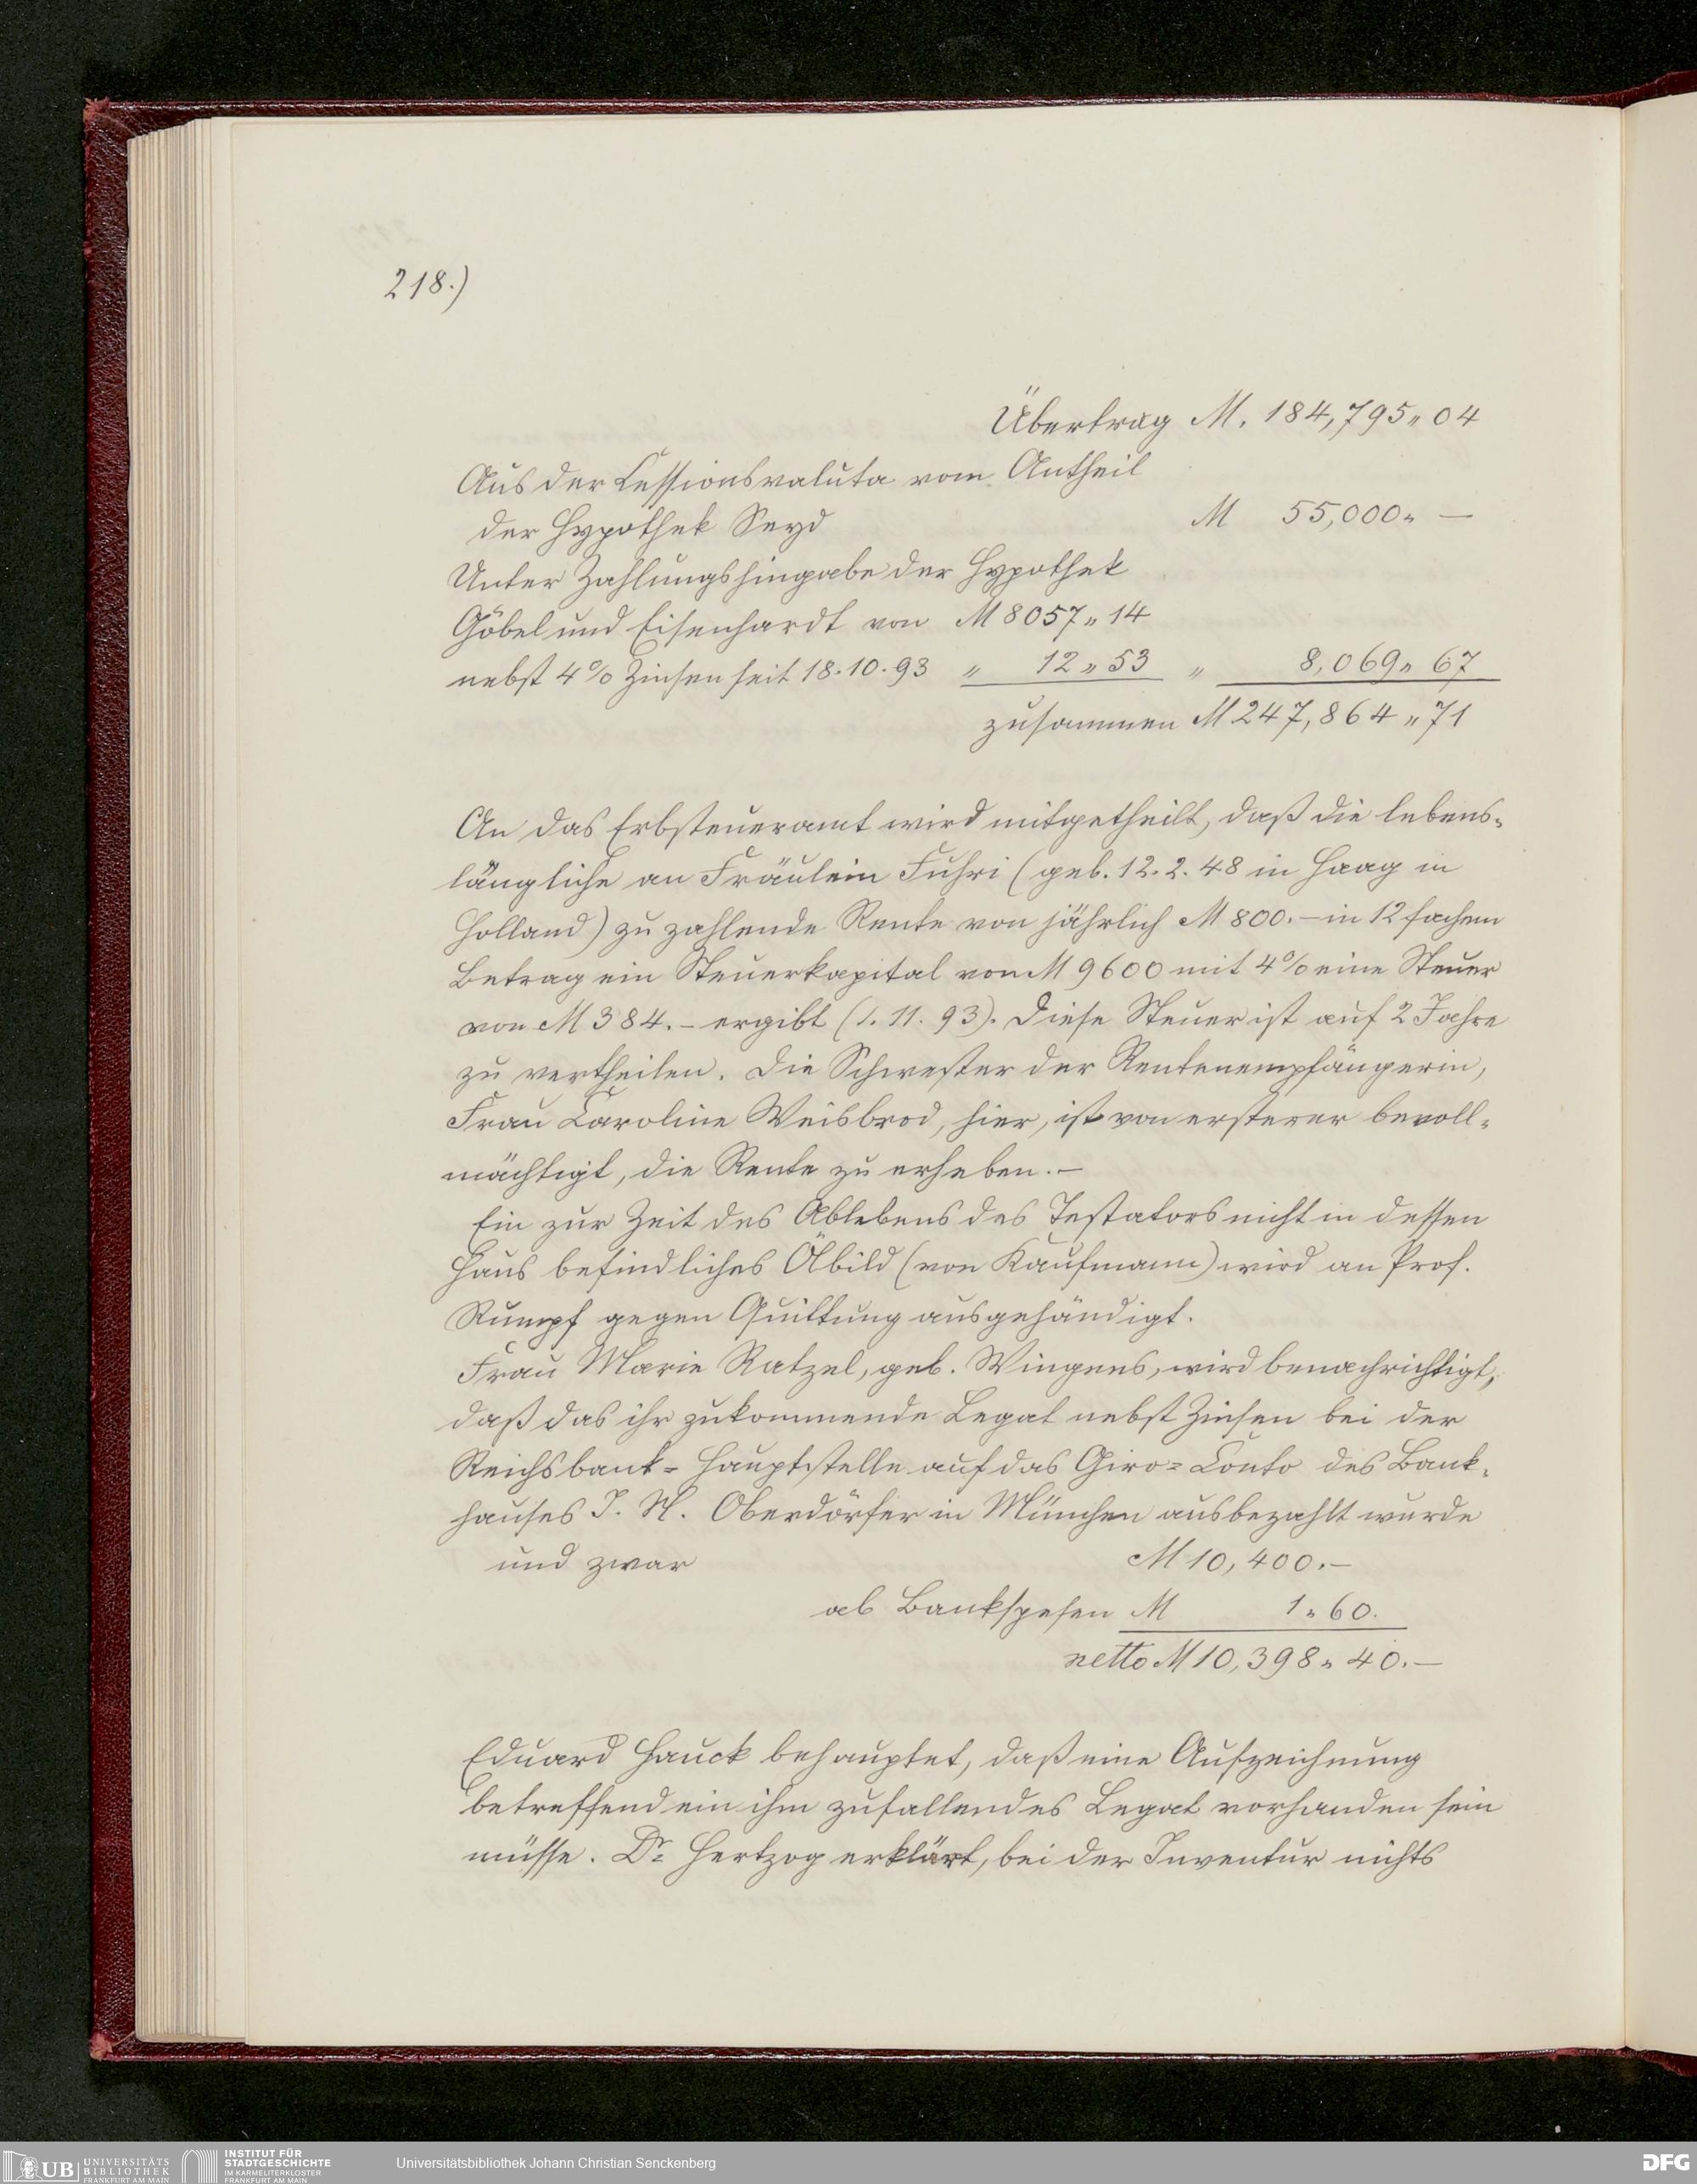 218.)
Übertrag M. 184,795„04
Aus der Cessionsvaluta vom Antheil
der Hypothek Seyd M 55,000„ —
Unter Zahlungshingabe der Hypothek
Göbel und Eisenhardt von M 8057„14
nebst 4% Zinsen seit 18.10.93 „ 12„53 „ 8,069„67
zusammen M 247,864„71
An das Erbsteueramt wird mitgetheilt, daß die lebens-
längliche an Fräulein Fuhri (geb. 12.2.48 in Haag in
Holland) zu zahlende Rente von jährlich M 800.— in 12 fachem
Betrag ein Steuerkapital von M 9600 mit 4% eine Steuer
von M 384.— ergibt (1.11.93). Diese Steuer ist auf 2 Jahre
zu vertheilen. Die Schwester der Rentenempfängerin,
Frau Caroline Weisbrod, hier, ist von ersterer bevoll-
mächtigt, die Rente zu erheben.—
Ein zur Zeit des Ablebens des Testators nicht in dessen
Haus befindliches Ölbild (von Kaufmann) wird an Prof.
Rumpf gegen Quittung ausgehändigt.
Frau Marie Ratzel, geb. Wingens, wird benachrichtigt,
daß das ihr zukommende Legat nebst Zinsen bei der
Reichsbank-Hauptstelle auf das Giro-Conto des Bank-
hauses J. N. Oberdörfer in München ausbezahlt wurde
und zwar M 10,400.—
ab Bankspesen M 1„60.
netto M 10,398„40.—
Eduard Hauck behauptet, daß eine Aufzeichnung
betreffend ein ihm zufallendes Legat vorhanden sein
müsse. Dr Hertzog erklärt, bei der Inventur nichts
UB UNIVERSITÄTS
BIBLIOTHEK
FRANKFURT AM MAIN
INSTITUT FÜR
STADTGESCHICHTE
IM KARMELITERKLOSTER
FRANKFURT AM MAIN
Universitätsbibliothek Johann Christian Senckenberg
DFG